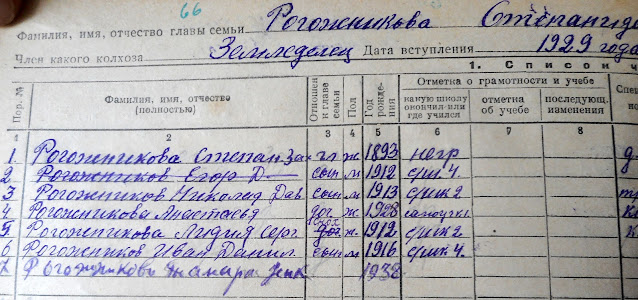 66
Фамилия, имя, отчество главы семьи Рогожникова Степанида
Член какого колхоза Земледелец Дата вступления 1929 года
1. Список ч
Пор. № Фамилия, имя, отчество (полностью) Отношен. к главе семьи Пол Год рождения Отметка о грамотности и учебе
какую школу окончил или где учился отметка об учебе последующ. изменения
1 2 3 4 5 6 7 8
1. Рогожникова Степан. За гл ж 1893 негр
2 Рогожников Егор Д сын м 1912 4.
3 Рогожников Николай Дав сын м 1913 2
4 Рогожникова Анастасья доч ж 1928
5 Рогожникова Лидия Серг. ж 1912 2
6 Рогожников Иван Данил сын м 1916 4.
7 Рогожникова Тамара 1938